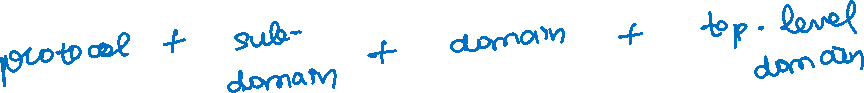 protocol + sub-domain + domain + top-level domain